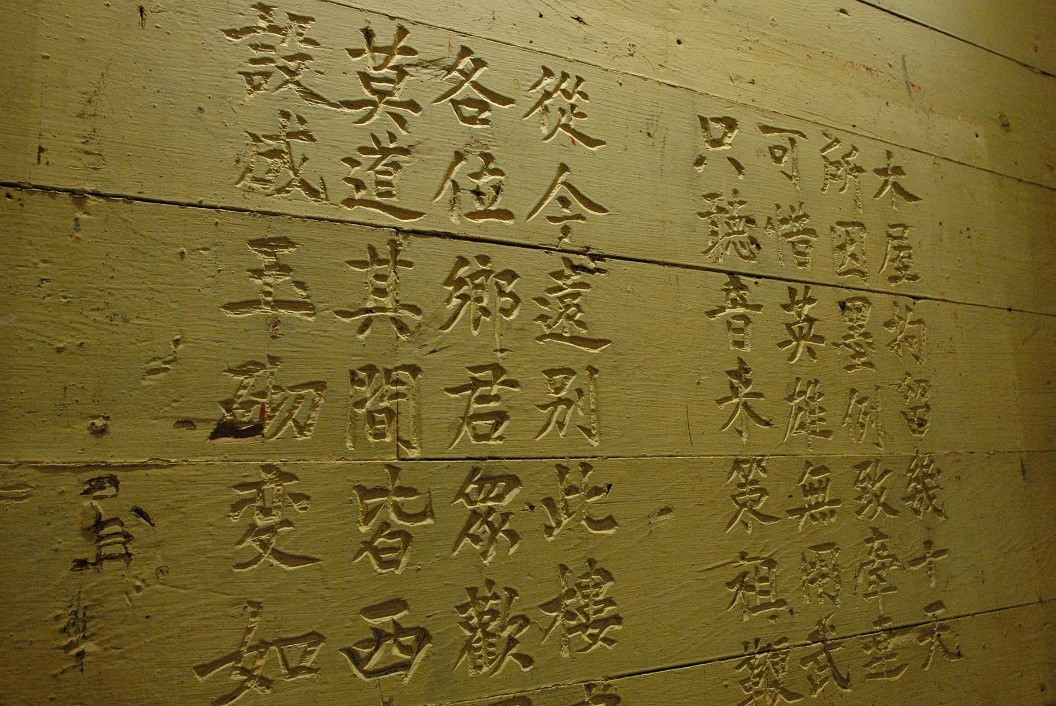 木屋拘留幾十天
所因墨例致牽連
可惜英雄無用武
只聽音来策祖鞭
從今遠別此樓
各位鄉君眾歡
莫道其間皆西
設成玉砌変如